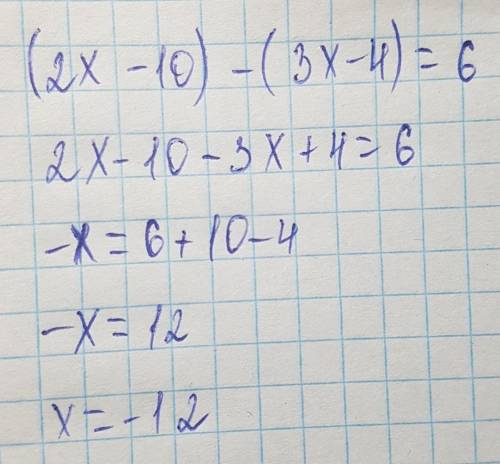 (2x - 10) - (3x - 4) = 6
2x - 10 - 3x + 4 = 6
-x = 6 + 10 - 4
-x = 12
x = -12